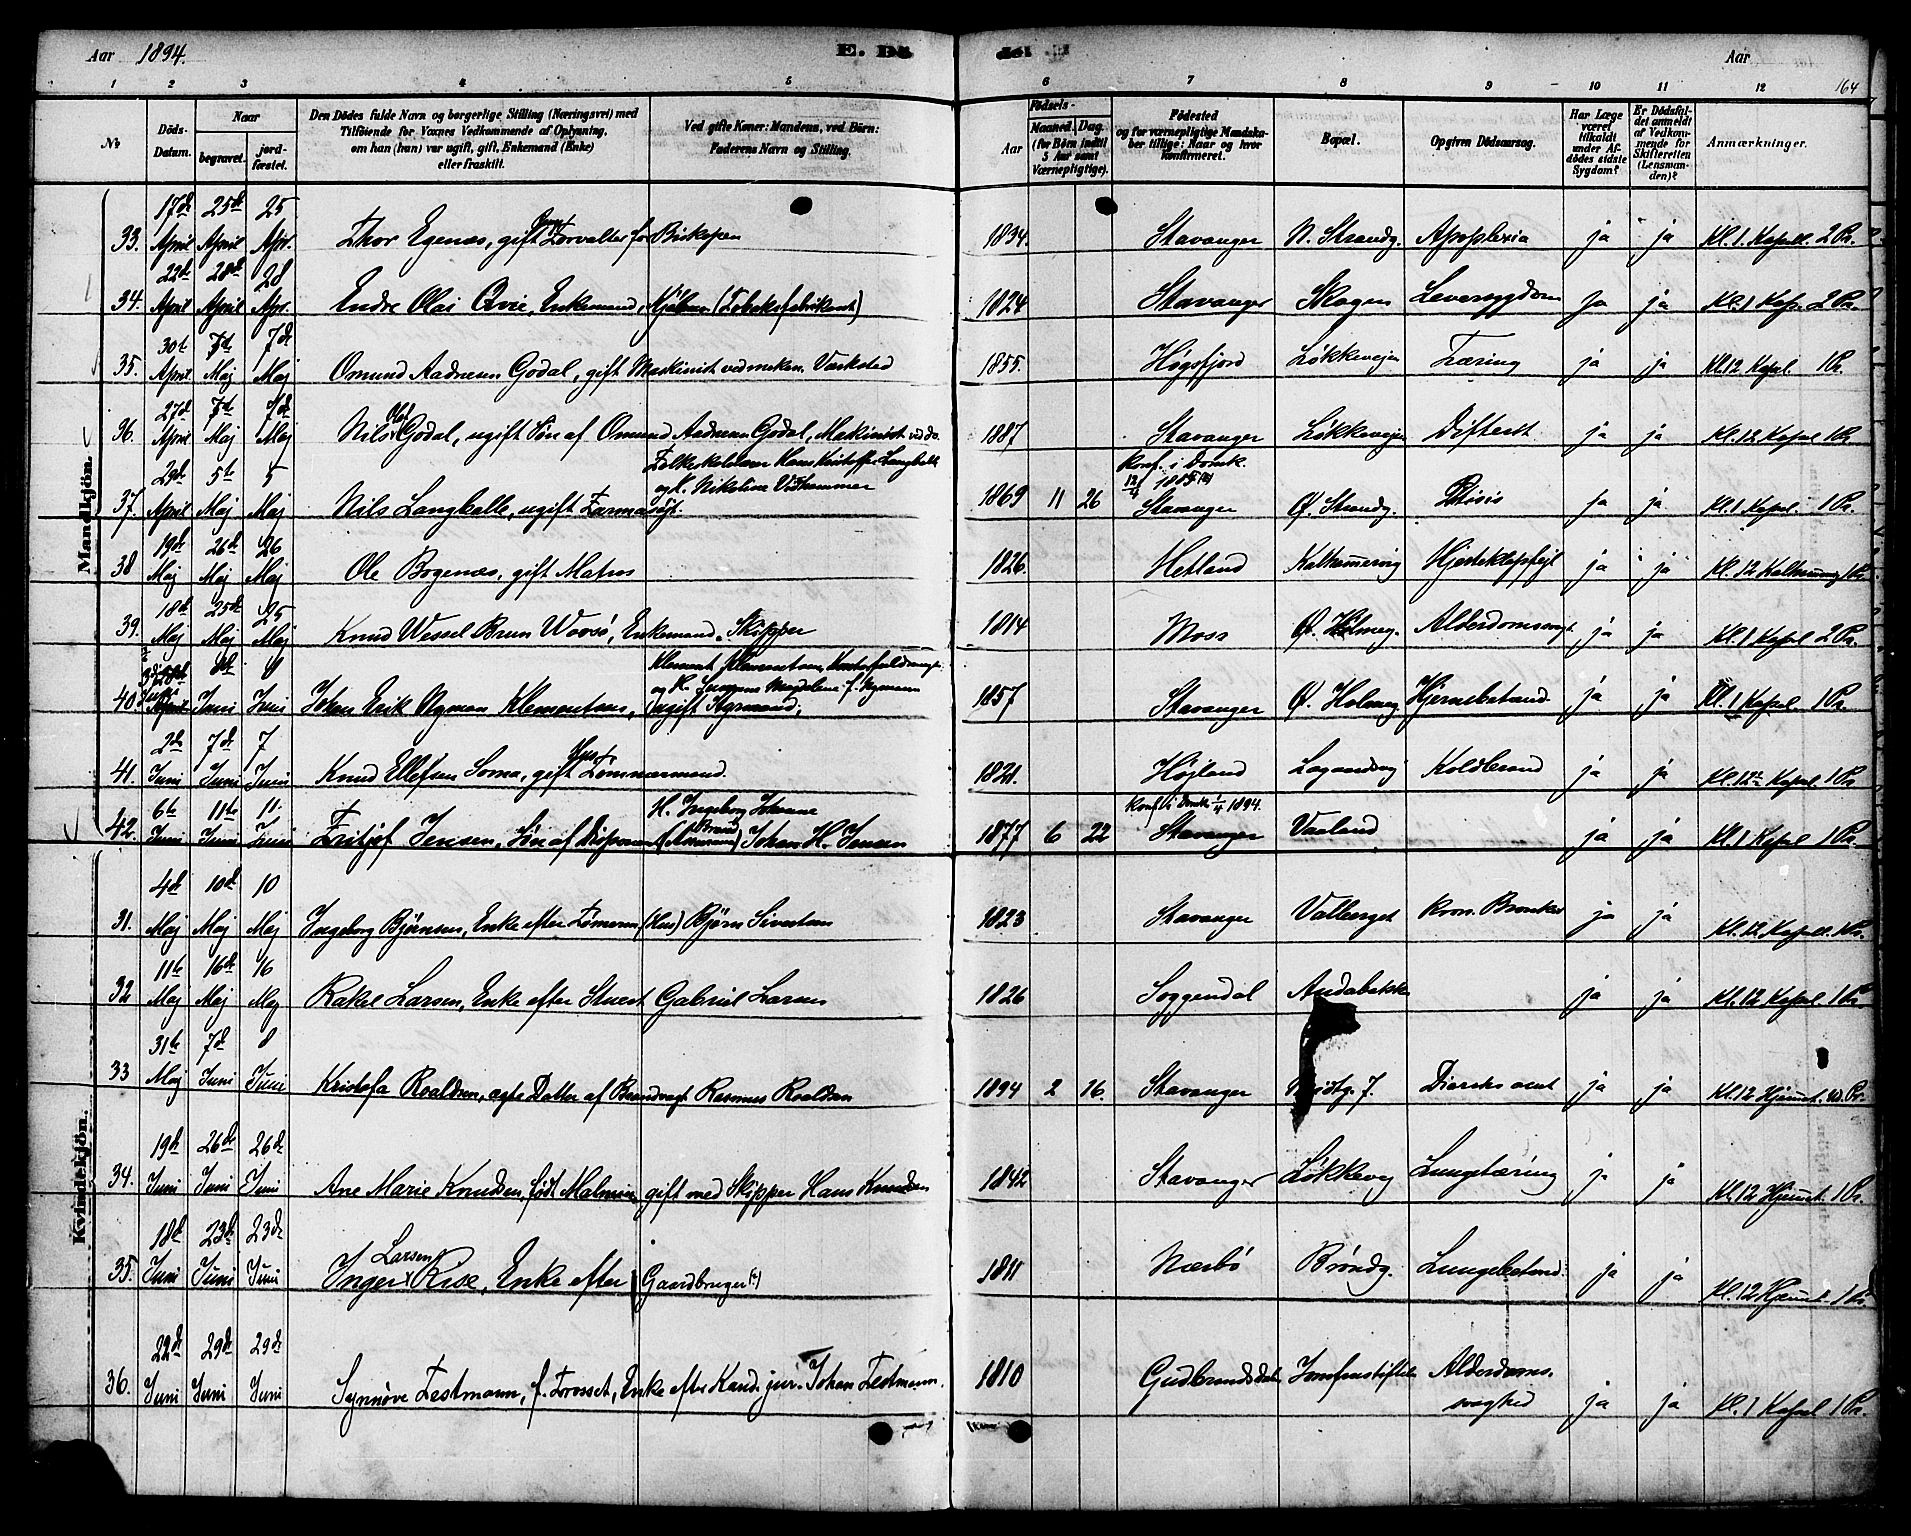 Aar 1894.
E. Dö del
Aar
164
1 2 3 4 5 6 7 8 9 10 11 12
No
Döds-Datum.
Naar
begravet.
jordfæstet.
Den Dödes fulde Navn og borgerlige Stilling (Næringsvei) med Tilföiende for Voxnes Vedkommende af Oplysning, om han (hun) var ugift, gift, Enkemand (Enke) eller fraskilt.
Ved gifte Koner: Mandens, ved Börn: Faderens Navn og Stilling.
Aar
Födsels-
Maaned. Dag.
(for Börn indtil 5 Aar samt Værnepligtige).
Födested og for værnepligtige Mandskaber tillige: Naar og hvor konfirmeret.
Bopæl.
Opgiven Dödsaarsag.
Har Læge været tilkaldt under Afdödes sidste Sygdom?
Er Dödsfaldet anmeldt af Vedkommende for Skifteretten (Lensmanden)?
Anmærkninger.
Mandkjön.
33. 17de April 25de April 25 Apr. Thor Egenæs, gift Forvalter for Bispen 1834. Stavanger N. Strandg. Apoplexia ja ja Kl. 1. Kapell. 2 Pr.
34. 22de April 28de April 28 Apr. Endre Olai Qvie, Enkemand, Kjøbm (Tobaksfabrikant) 1824 Stavanger Skagen Leversygdom ja ja Kl. 1 Kap. 2 Pr.
35. 30te April Maj 7de Maj Omund Aadnesen Godal, gift Maskinist ved meken. Værksted 1855. Høgsfjord Løkkevejen Tæring ja ja Kl. 12 Kapel 1 Pr.
36. 27de April Maj 7de Maj Nils Olaf Godal, ugift Søn af Omund Aadnesen Godal, Maskinist ved do. 1887 Stavanger Løkkevejen Difterit ja ja Kl. 12 Kapel 1 Pr.
37. 29de April 5te Maj 5 Maj Nils Langballe, ugift Farmasøjt. Hans Kristoffer Langballe og H. Nikoline 1869 11 26 Konf. i Domk. Stavanger Ø. Strandg. Ptisis ja ja Kl. 1 Kapel. 1 Pr.
38 19de Maj 26de Maj 26 Maj Ole Bogenæs, gift Matros 1826. Hetland ja ja Kl. 12 1 Pr.
39. 18de Maj 25de Maj 25 Maj Knud Wessel Brun Woosø, Enkemand, Skipper 1814 Moss Ø. Holmeg. Alderdomssvagh. ja ja Kl. 1 Kapel 2 Pr.
40. 8de Juni 8 Juni Johan Erik Nyman Klementsen, ugift Styrmand, Klement Klementsen 1857 Stavanger Ø. Holmeg Hjernebetænd. ja ja Kl. 1 Kapel. 1 Pr.
41. 2de Juni 7de Juni 7 Juni Knud Ellefsen Soma, gift Hus Tømmermand. 1821. Høiland Lagaardsvej Koldbrand ja ja Kl. 12 Kapel. 1 Pr.
42. 6te Juni 11te Juni 11. Juni Fritjof Jensen, Søn af Disponent Johan H. Jensen H. Ingeborg Johanne 1877 6 22 Konf. i Domk. 1/4 1894. Stavanger Vaaland ja ja Kl. 1 Kapel 1 Pr.
Kvindekjön.
31. 4de Maj 10de Maj 10 Maj Ingeborg Bjørnsen, Enke efter Tømmerm (Hus) Bjørn Sivertsen 1823 Stavanger Valberget Kron. Bronkit ja ja Kl. 12 Kapell. 1 Pr.
32 11te Maj 16de Maj 16 Maj Rakel Larsen, Enke efter Stuert Gabriel Larsen 1826 Soggendal Andabekke ja ja Kl. 12 Kapel 1 Pr
33 31te Maj 7de Juni 8 Juni Kristofa Roaldsen, ægte Datter af Brandvagt Rasmus Roaldsen 1894 2 16. Stavanger 7. ja ja Kl. 12 Hjemmet. u. Pr.
34. 19de Juni 26de Juni 26de Juni Ane Marie Knudsen, født Malmin, gift med Skipper Hans Knudsen 1842 Stavanger Løkkevej Lungetæring ja ja Kl. 12 Hjemmet. 1 Pr.
35. 18de Juni 23de Juni 23de Juni Inger Larsen Rise, Enke efter Gaardbruger (?) 1811 Nærbø Brøndg. Lungebetænd. ja ja Kl. 12 Hjemmet 1 Pr
36. 22de Juni 29de Juni 29de Juni Synnøve Festmann, f. Frosset, Enke efter Kand. jur. Johan Festmann. 1810 Gudbrandsdal Jomfrustiftel. Alderdomssvaghed ja ja Kl. 1 Kapel 1 Pr.